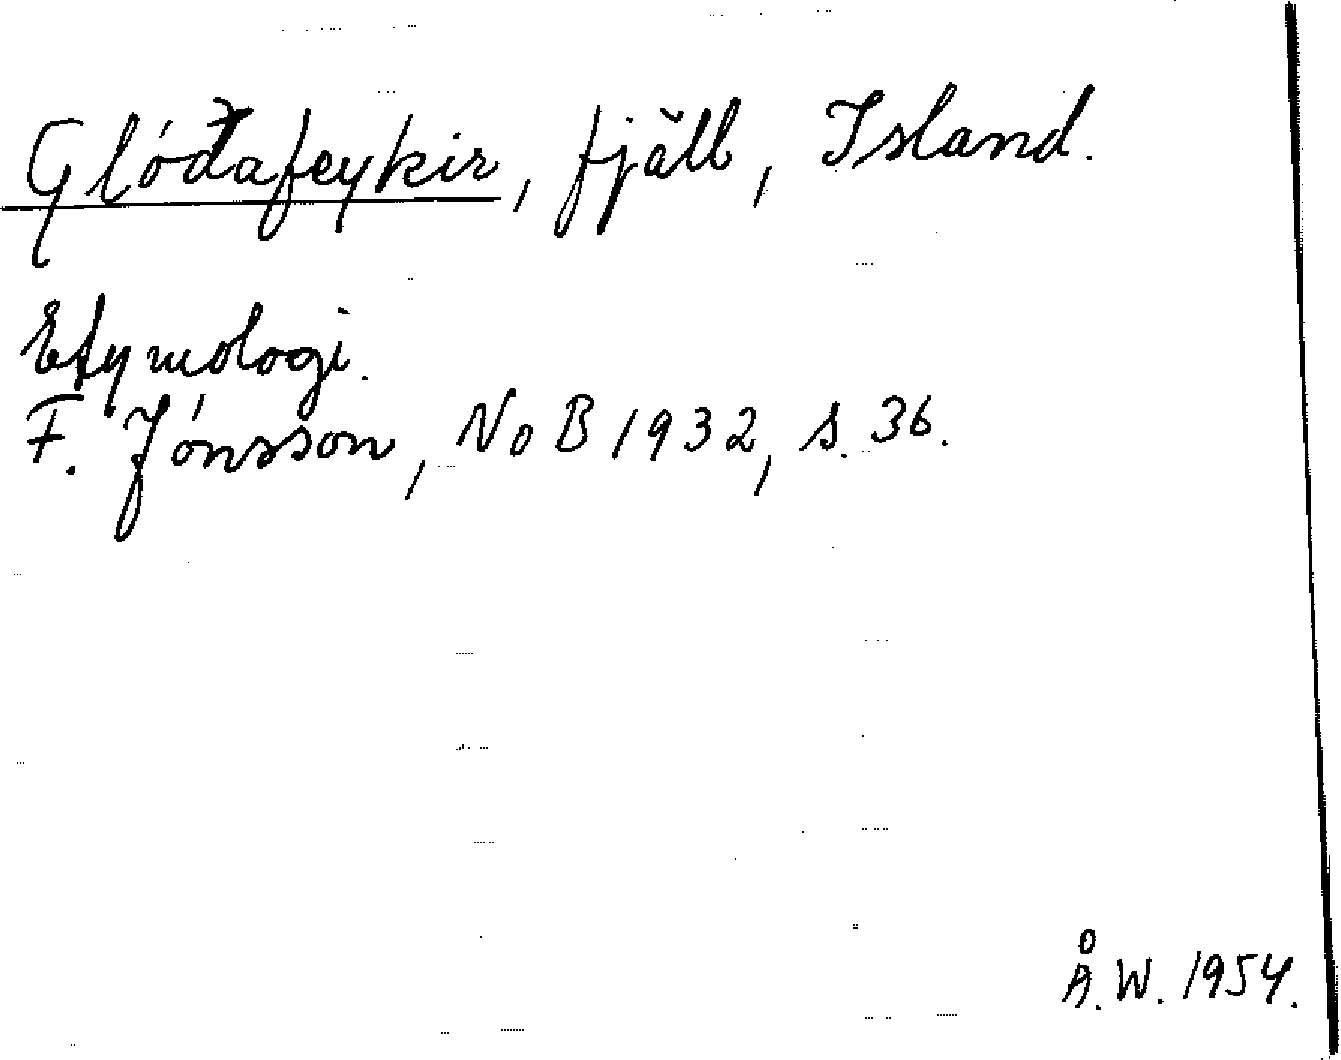 Glóðafeykir, fjäll, Island.
Etymologi.
F. Jónsson, NoB 1932, s. 36.
Å.W. 1954.